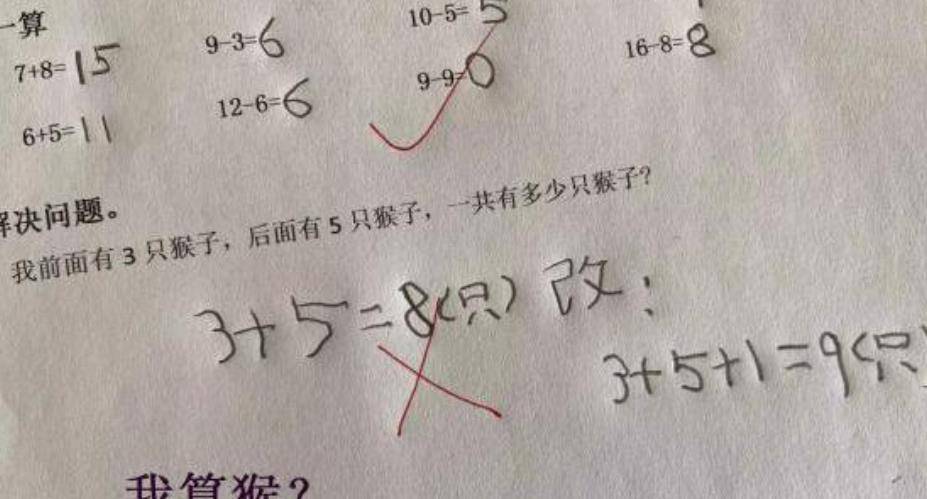 一算
10-5=5
9-3=6
7+8=15
16-8=8
9-9=0
12-6=6
6+5=11
解决问题。
我前面有 3 只猴子，后面有 5 只猴子，一共有多少只猴子?
3+5=8(只) 改:
3+5+1=9(只)
我算猴?